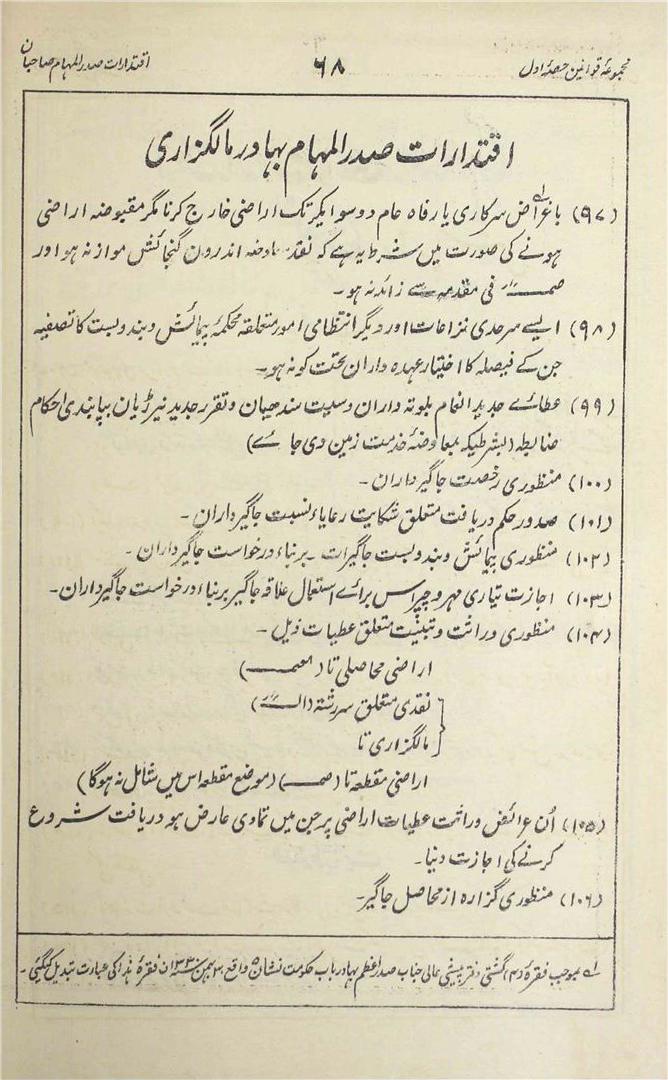 مجموعۂ قوانین حصۂ اول
۶۸
اقتدارات صدرالمہام صاحبان
اقتدارات صدرالمہام بہادر مالگزاری
(۹۷) باغراض سرکاری یا رفاہ عام دو سو ایکر تک اراضی خارج کرنا مگر مقبوضہ اراضی
ہونے کی صورت میں شرط یہ ہے کہ نقد معاوضہ اندرون گنجائش موازنہ ہو اور
فی مقدمہ سے زائد نہ ہو۔
(۹۸) ایسے سرحدی نزاعات اور دیگر انتظامی امور متعلقہ محکمۂ پیمائش و بندوبست کا تصفیہ
جن کے فیصلہ کا اختیار عہدہ داران تحت کو نہ ہو۔
(۹۹) عطائے جدید انعام بلوتہ داران وسیت سندھیان و تقرر جدید نیرڑیان بپابندی احکام
ضابطہ (بشرطیکہ بمعاوضۂ خدمت زمین دی جائے)
(۱۰۰) منظوری رخصت جاگیرداران۔
(۱۰۱) صدور حکم دریافت متعلق شکایت رعایاء نسبت جاگیرداران۔
(۱۰۲) منظوری پیمائش و بندوبست جاگیرات۔ بربناء درخواست جاگیرداران۔
(۱۰۳) اجازت تیاری مہر و چپراس برائے استعمال علاقہ جاگیر بربناء درخواست جاگیرداران۔
(۱۰۴) منظوری وراثت و تبنیت متعلق عطیات ذیل۔
اراضی محاصلی تا
نقدی متعلق سررشتہ
مالگزاری تا
اراضی مقطعہ تا (موضع مقطعہ اس میں شامل نہ ہوگا)
(۱۰۵) اُن عرائض وراثت عطیات اراضی پر جن میں تمادی عارض ہو دریافت شروع
کرنے کی اجازت دینا۔
(۱۰۶) منظوری گزارہ از محاصل جاگیر۔
لے بموجب فقرۂ (۴) گشتی دفتر پیشی عالی جناب صدراعظم بہادر باب حکومت نشان ۵ واقع بہمن فقرۂ ہذا کی عبارت تبدیل کیگئی۔